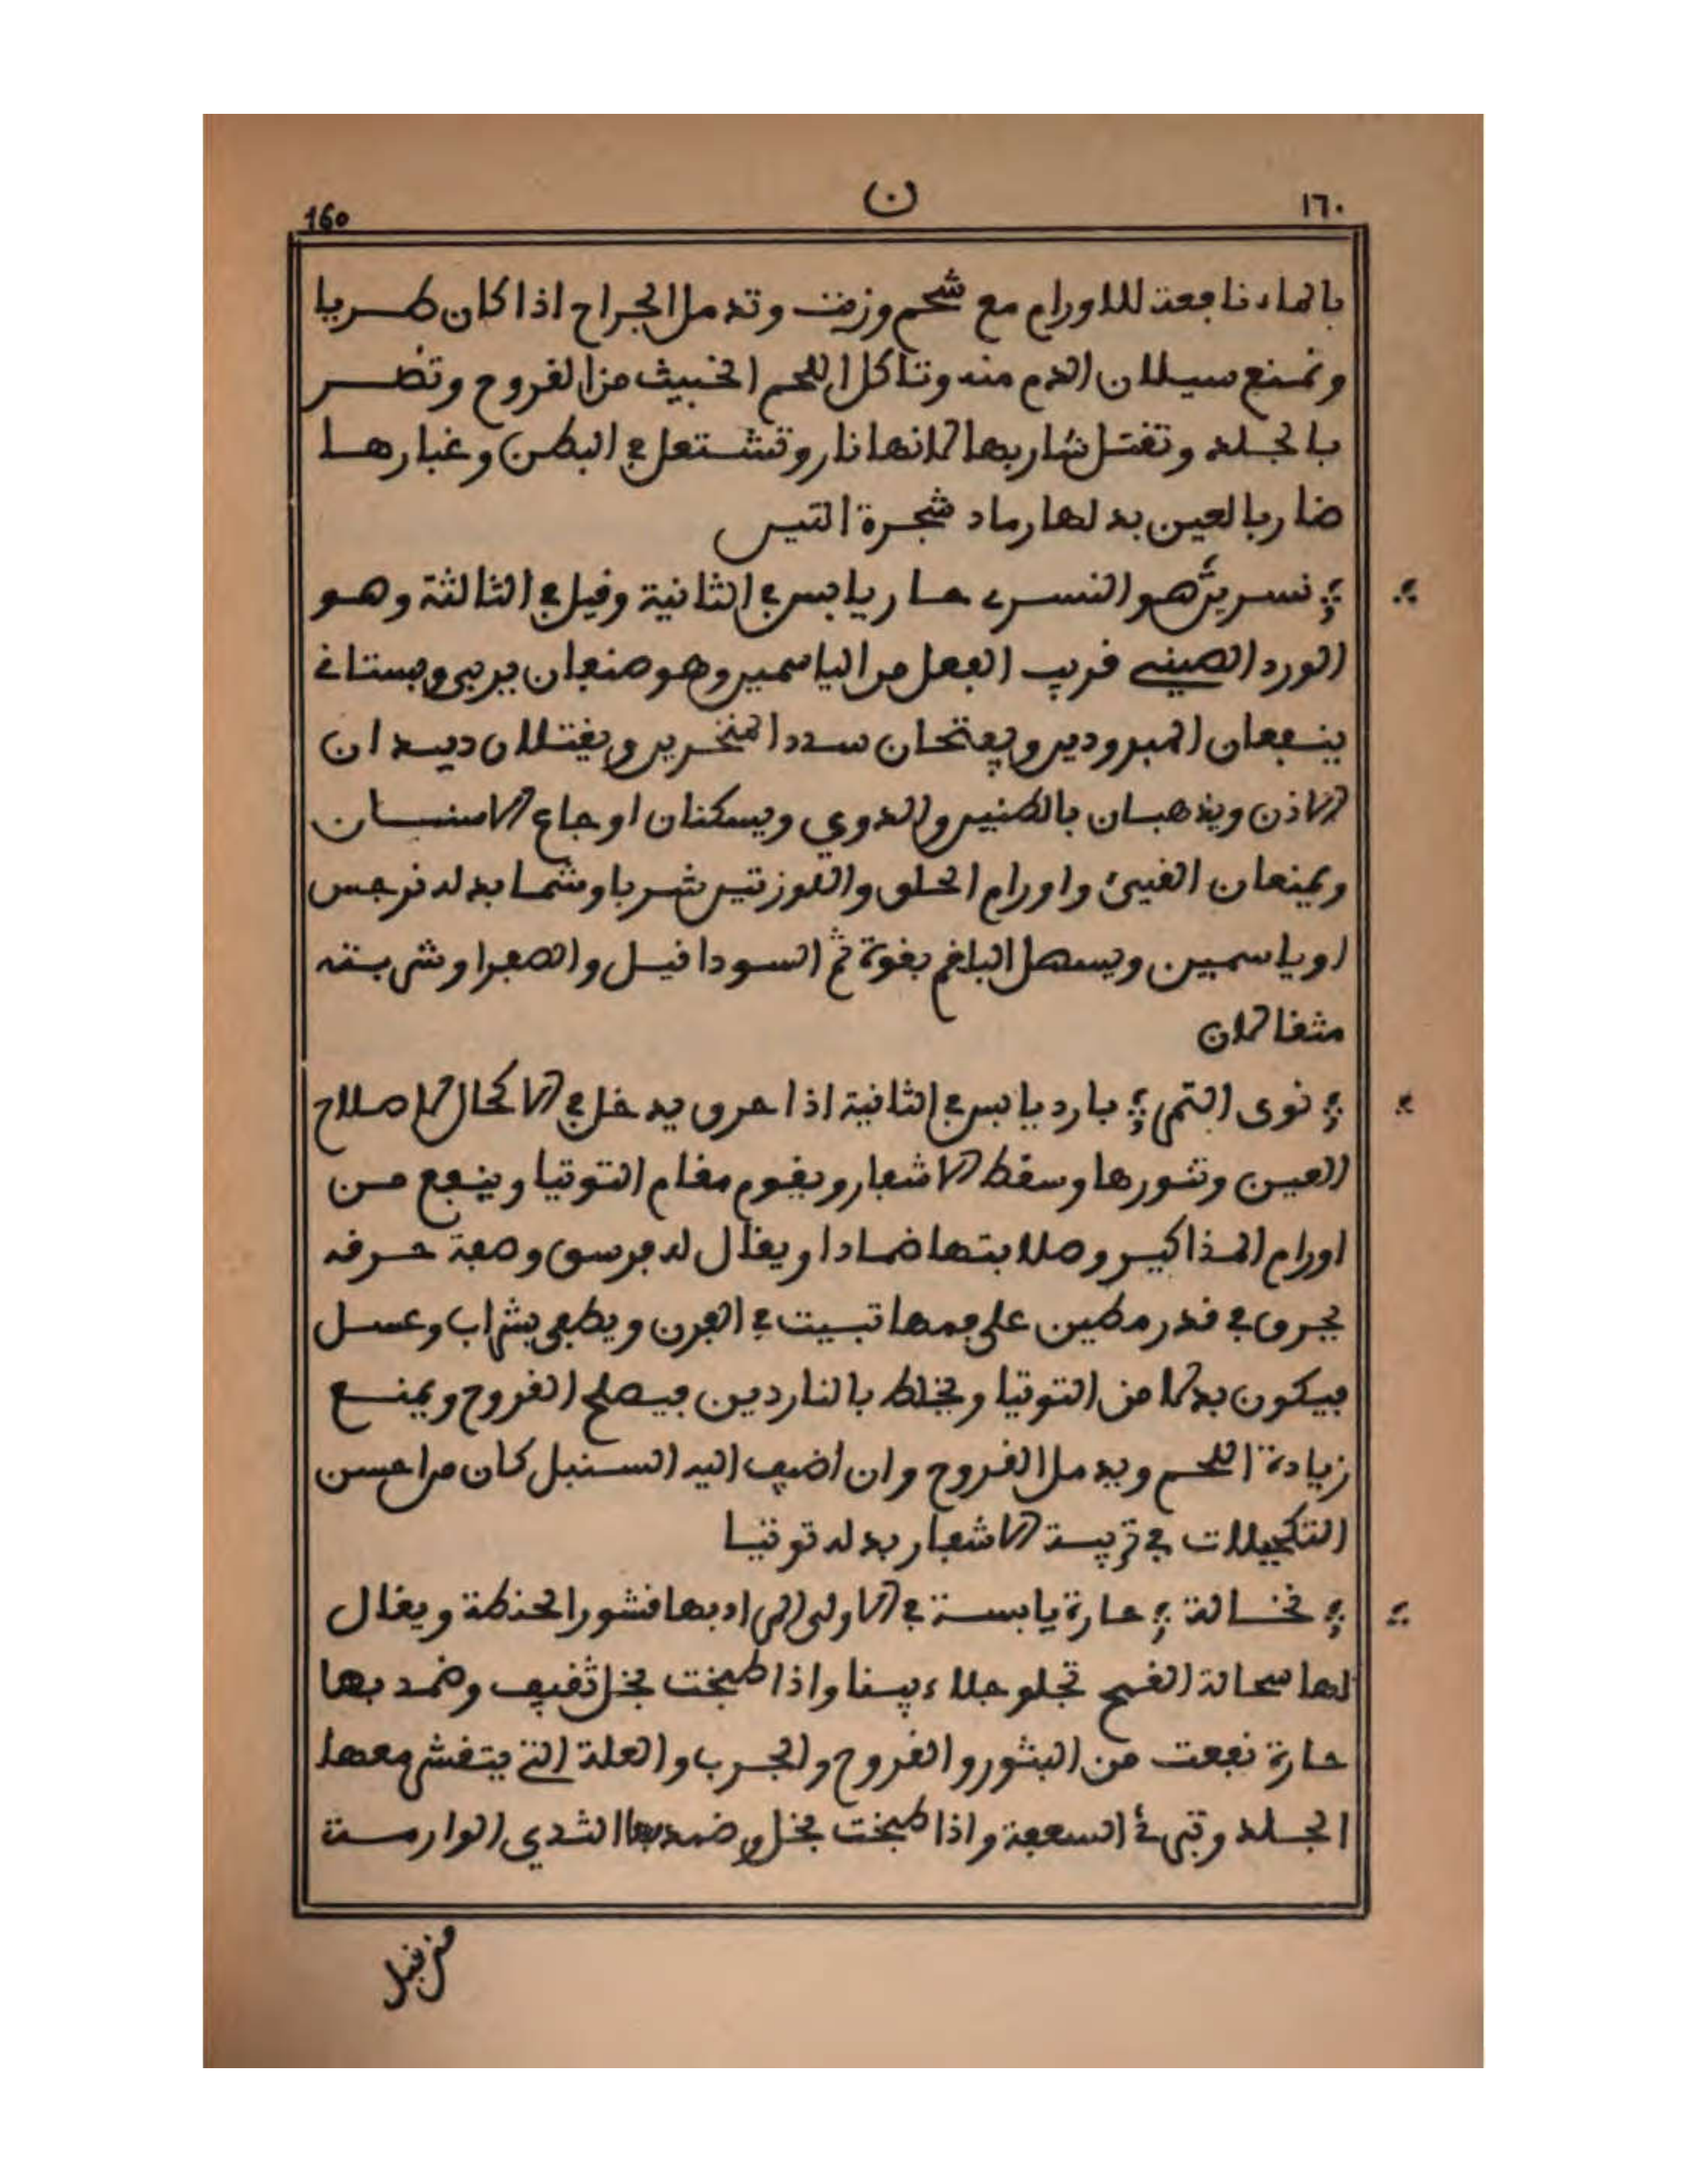 ١٦٠ ن 160
بالماء نافعة للاورام مع شحم وزفت وتدمل الجراح اذا كان طريا
وتمنع سيلان الدم منه وتاكل اللحم الخبيث من القروح وتضر
بالجلد وتقتل شاربها لانها نار وتشتعل في البطن وغبارها
ضار بالعين بدلها رماد شجرة التيس
نسرين هو النسري حار يابس في الثانية وقيل في الثالثة وهو
الورد الصيني قريب الفعل من الياسمين وهو صنفان بري وبستاني
ينفعان المبرودين ويفتحان سدد المنخرين ويقتلان ديدان
الاذن ويذهبان بالطنين والدوي ويسكنان اوجاع الاسنان
ويمنعان القيئ واورام الحلق واللوزتين شربا وشما بدله نرجس
او ياسمين ويسهل البلغم بقوة ثم السودا قيل والصفرا وشربته
مثقالان
نوى التمر بارد يابس في الثانية اذا حرق يدخل في الاكحال لاصلاح
العين وتثورها وسقط الاشعار ويقوم مقام التوتيا وينفع من
اورام المذاكير وصلابتها ضمادا ويقال له فرسق وصفة حرقه
يحرق في قدر مطين على فمها تبيت في الفرن ويطفى بشراب وعسل
فيكون بدلا من التوتيا ويخلط بالناردين فيصلح القروح ويمنع
زيادة اللحم ويدمل القروح وان اضيف اليه السنبل كان من احسن
التكحيلات في تربية الاشعار بدله توتيا
نخالة حارة يابسة في الاولى المراد بها قشور الحنطة ويقال
لها سحالة القمح تجلو جلاء بينا واذا طبخت بخل ثقيف وضمد بها
حارة نفعت من البثور والقروح والجرب والعلة التي يتقشر معها
الجلد وتبرئ السعفة واذا طبخت بخل وضمد بها الثدي الوارمة
من قبل